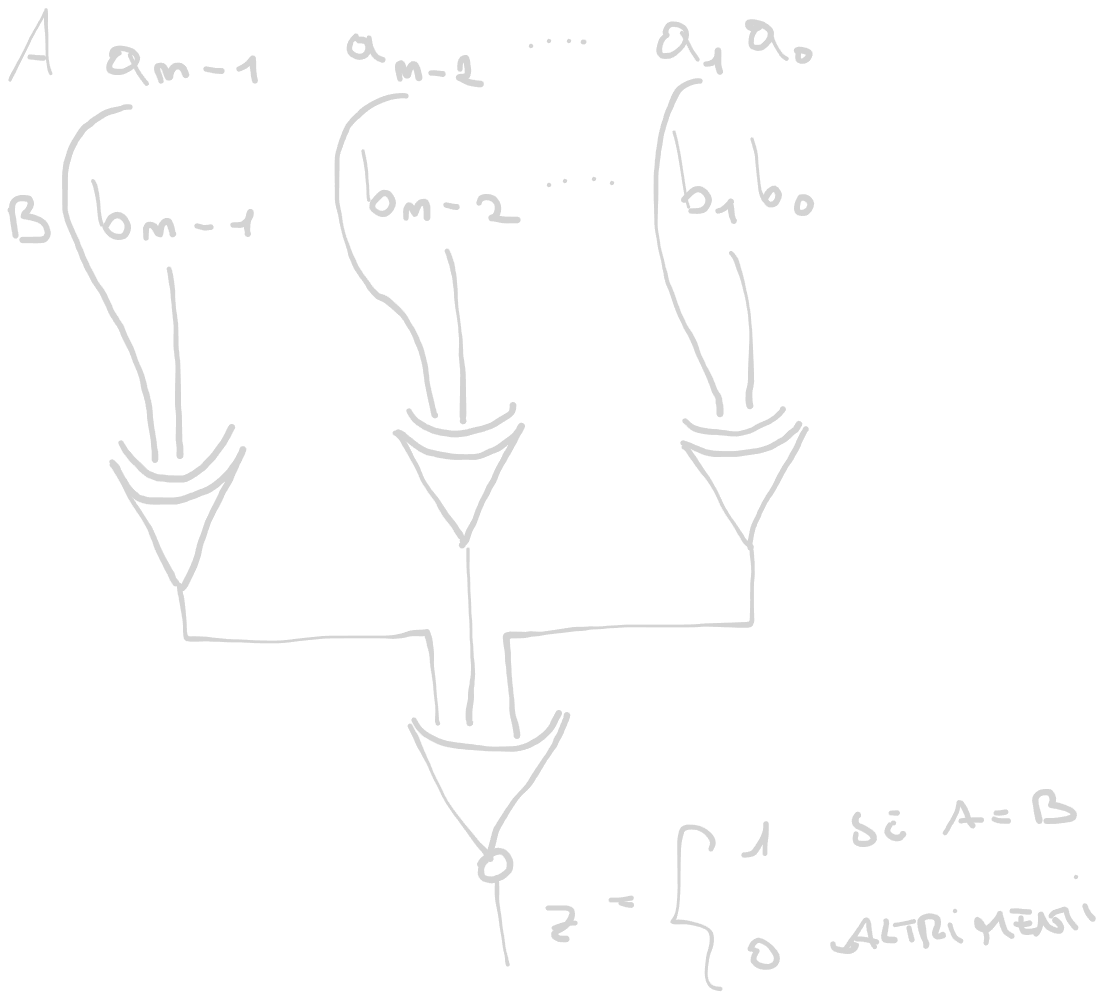 A a_{m-1} a_{m-2} .... a_1 a_0
B b_{m-1} b_{m-2} .... b_1 b_0
z = { 1 SE A = B
0 ALTRIMENTI